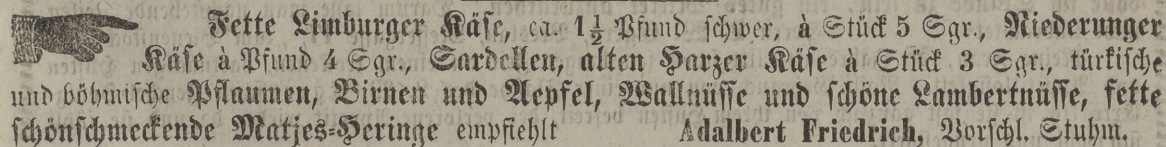 Fette Limburger Käse, ca. 1½ Pfund schwer, à Stück 5 Sgr., Niederunger
Käse à Pfund 4 Sgr., Sardellen, alten Harzer Käse à Stück 3 Sgr., türkische
und böhmische Pflaumen, Birnen und Aepfel, Wallnüsse und schöne Lambertnüsse, fette
schönschmeckende Matjes-Heringe empfiehlt Adalbert Friedrich, Vorschl. Stuhm.